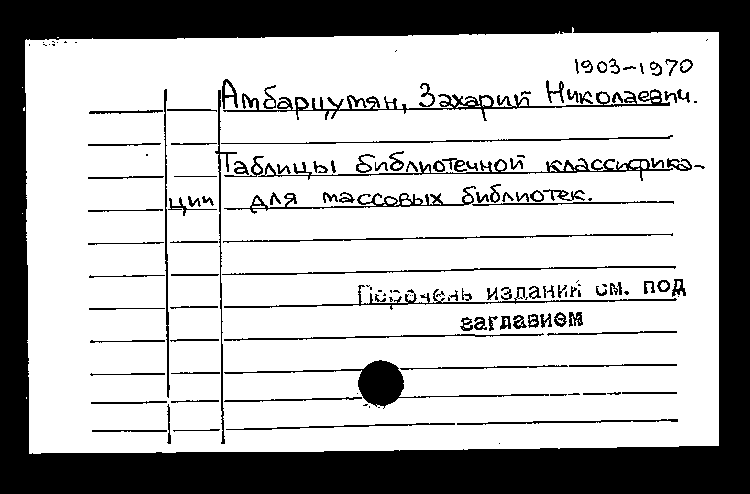 1903-1970
Амбарцумян, Захарий Николаевич.
Таблицы библиотечной классифика-
ции для массовых библиотек.
Перечень изданий см. под
заглавием